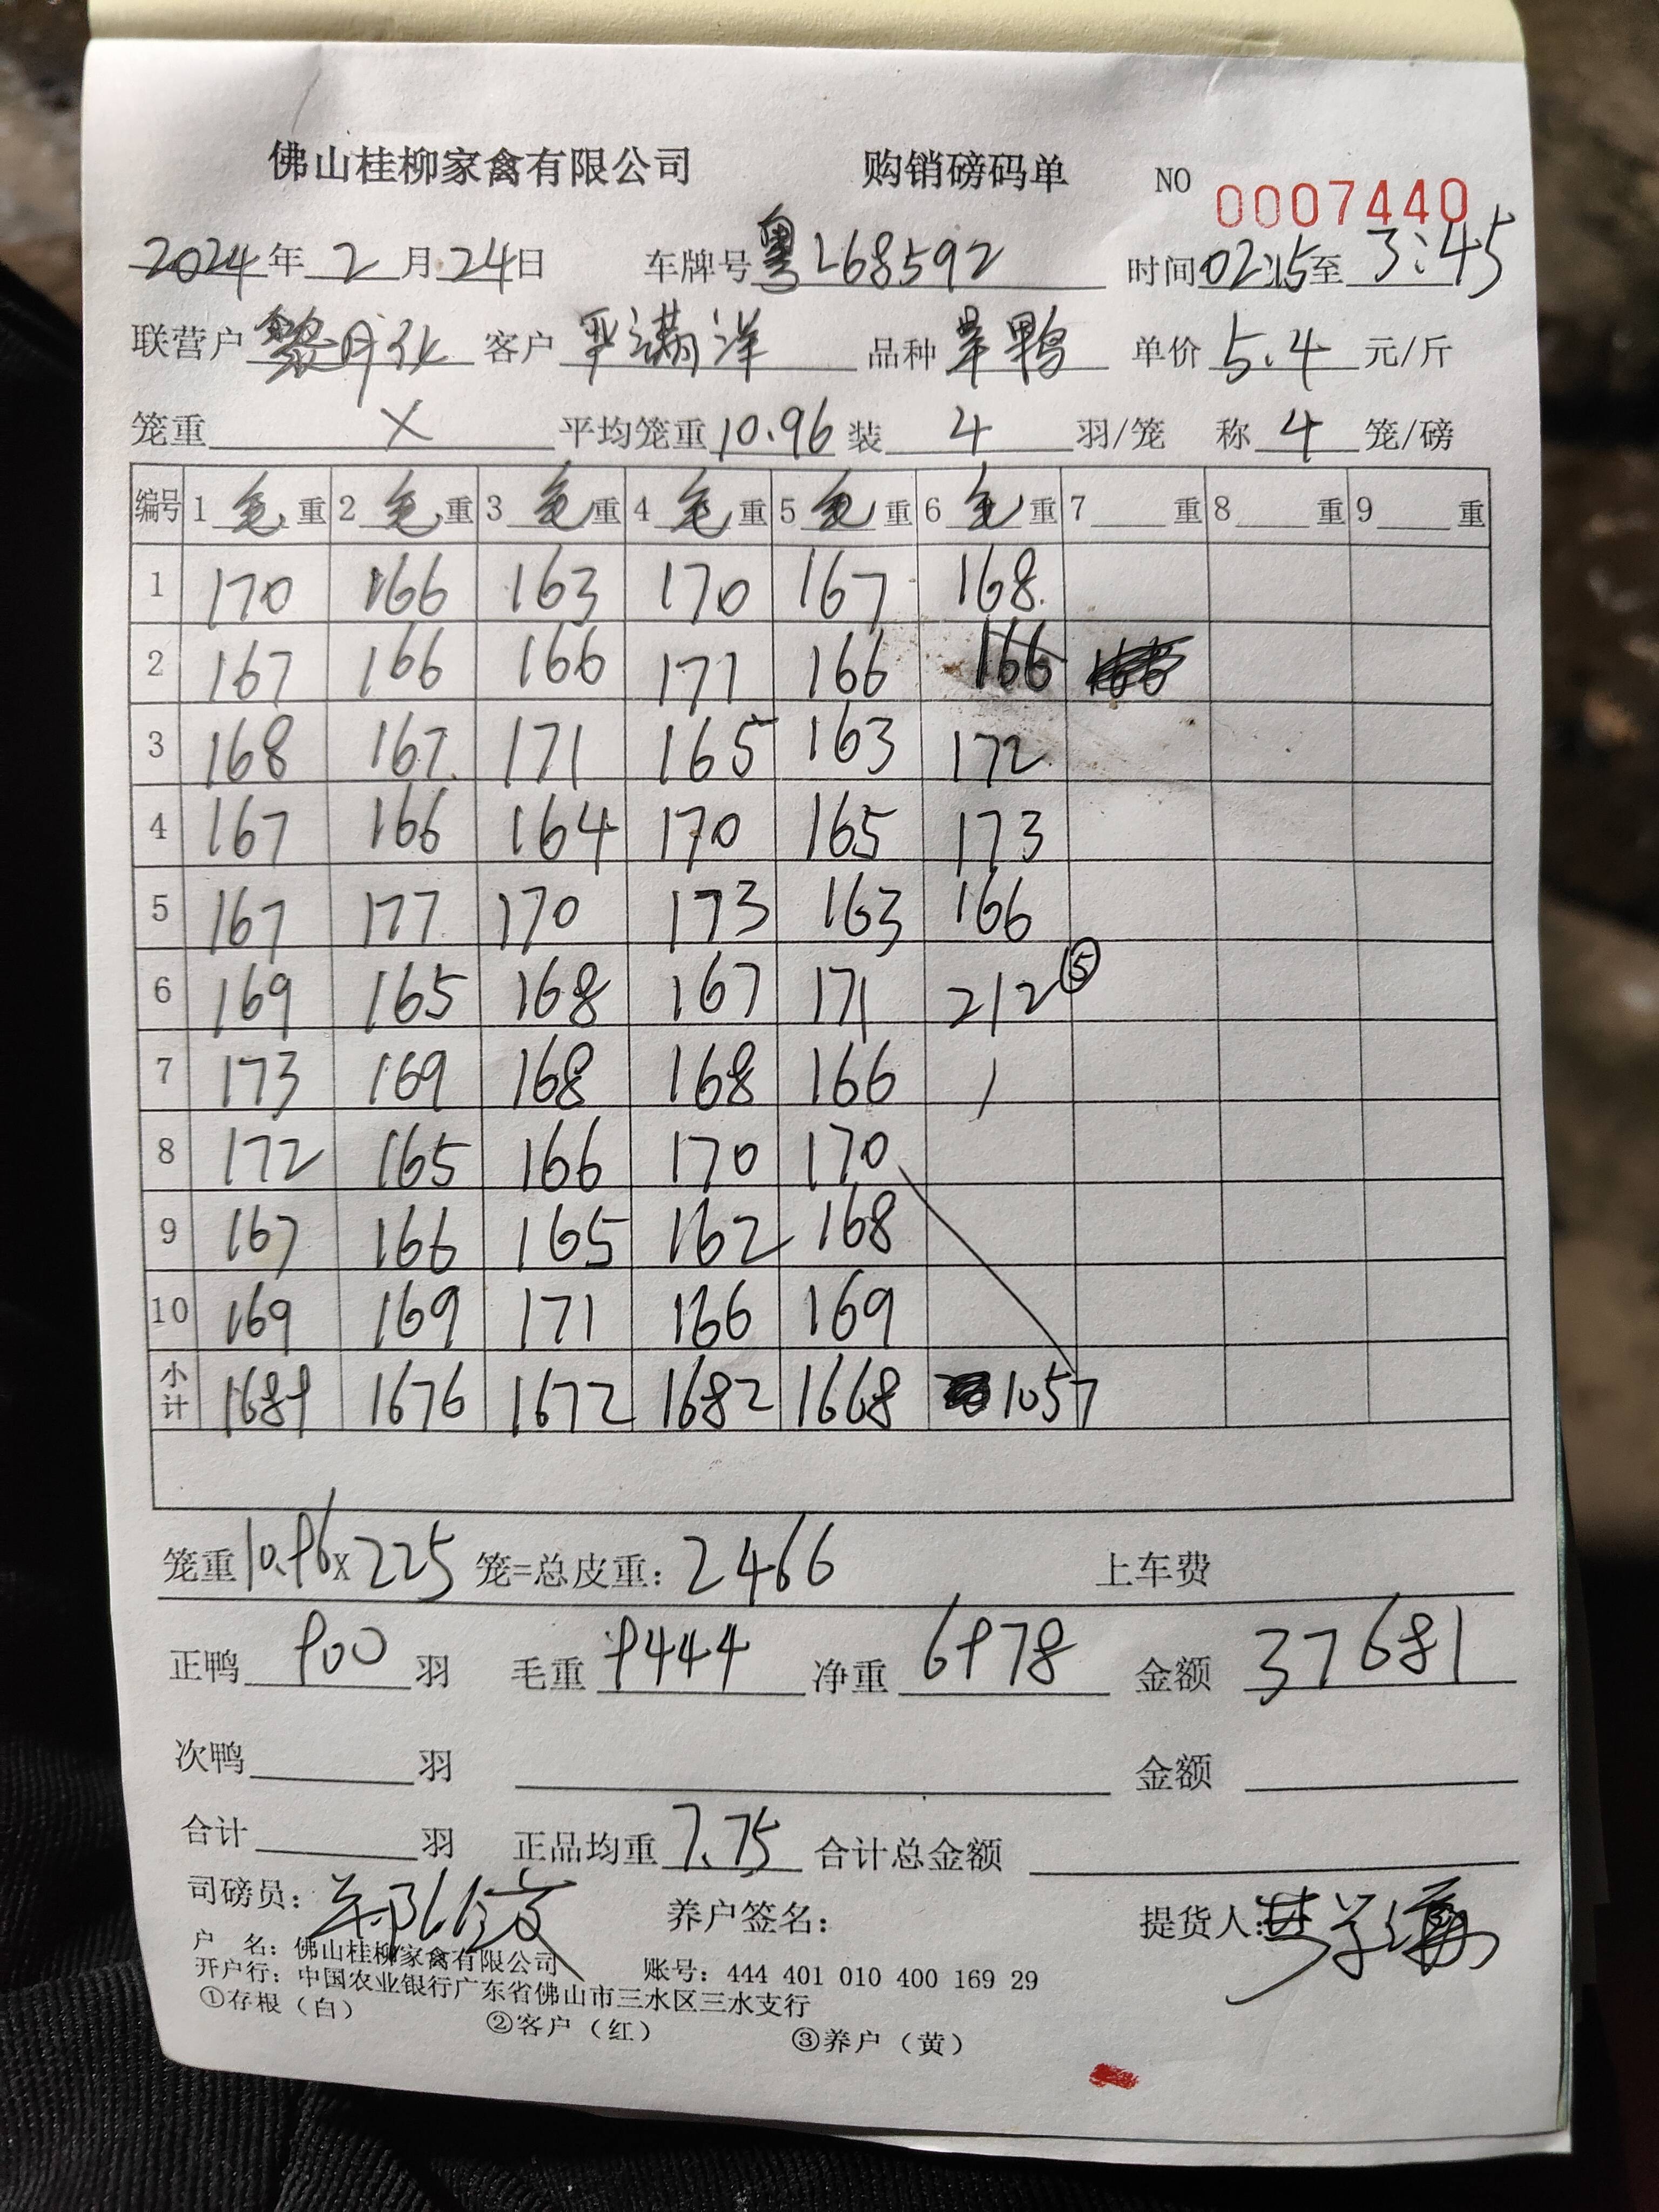 佛山桂柳家禽有限公司 购销磅码单 NO 0007440
2024年2月24日 车牌号粤L68592 时间02:15至3:45
联营户 客户 严满洋 品种 草鸭 单价5.4元/斤
笼重 X 平均笼重10.96装 4 羽/笼 称 4 笼/磅
编号 1毛重 2毛重 3毛重 4毛重 5毛重 6毛重 7 重 8 重 9 重
1 170 166 163 170 167 168
2 167 166 166 171 166 166
3 168 167 171 165 163 172
4 167 166 164 170 165 173
5 167 177 170 173 163 166
6 169 165 168 167 171 212⑤
7 173 169 168 168 166
8 172 165 166 170 170
9 167 166 165 162 168
10 169 169 171 166 169
小计 1689 1676 1672 1682 1668 1057
笼重10.96x225笼=总皮重：2466 上车费
正鸭 900 羽 毛重 9444 净重 6978 金额 37681
次鸭 羽 金额
合计 羽 正品均重 7.75 合计总金额
司磅员： 养户签名： 提货人：
户 名：佛山桂柳家禽有限公司 账号：444 401 010 400 169 29
开户行：中国农业银行广东省佛山市三水区三水支行
①存根（白） ②客户（红） ③养户（黄）